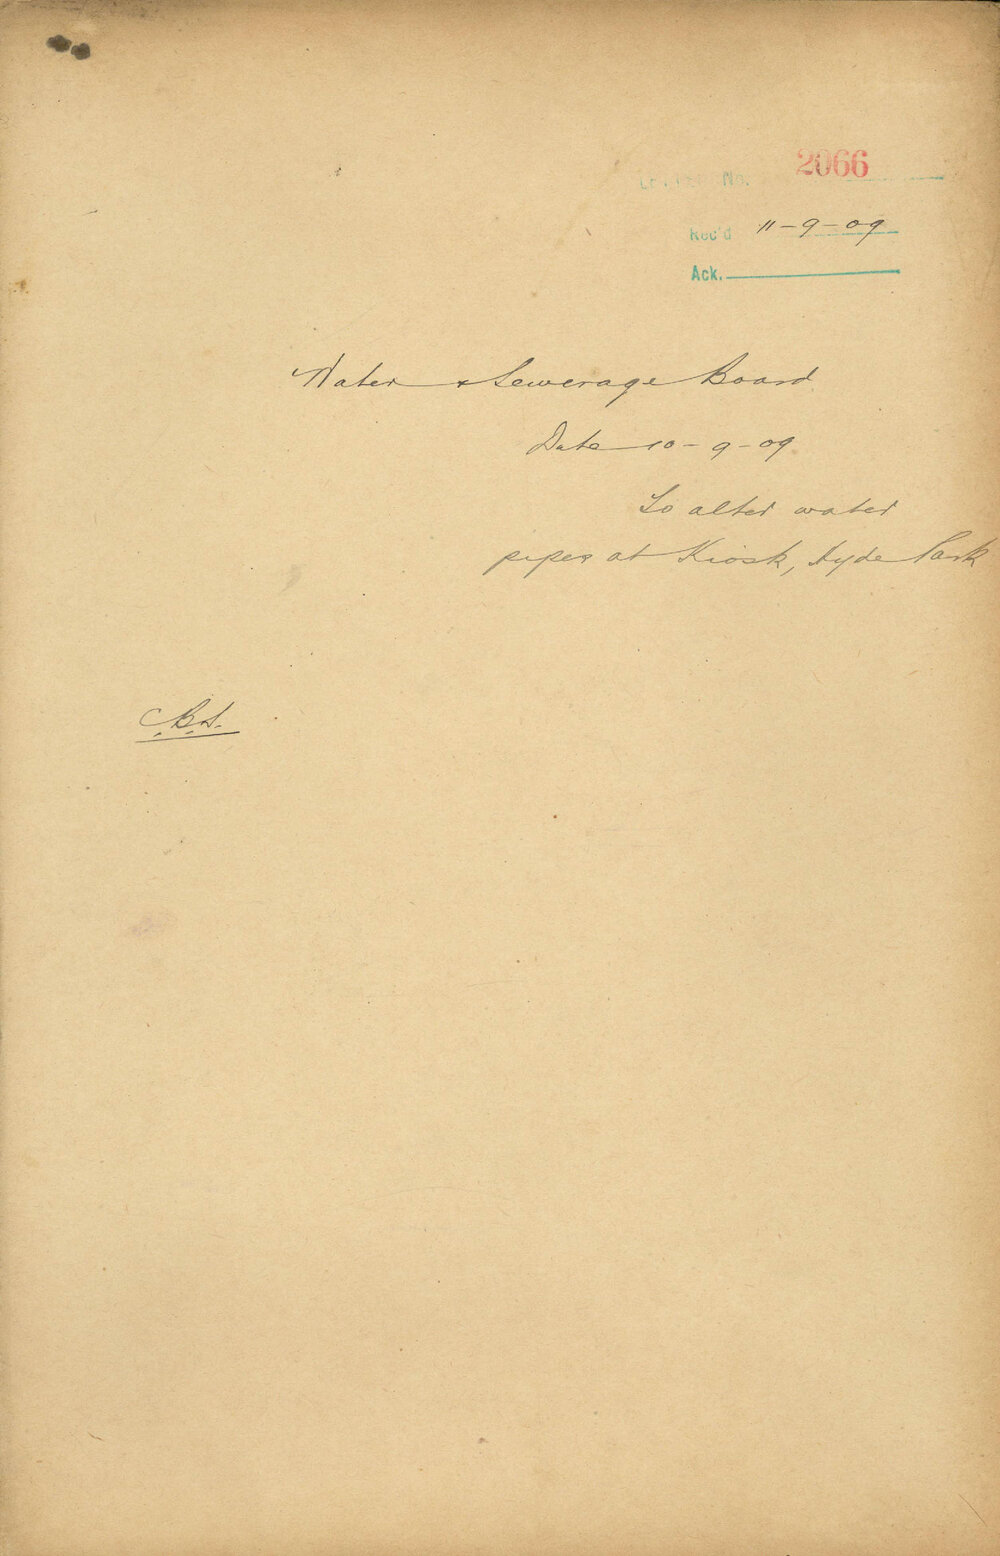 LETTER No. 2066
Rec'd 11-9-09
Ack.
Water & Sewerage Board
Date 10-9-09
To alter water
pipes at Kiosk, Hyde Park
C.B.S.